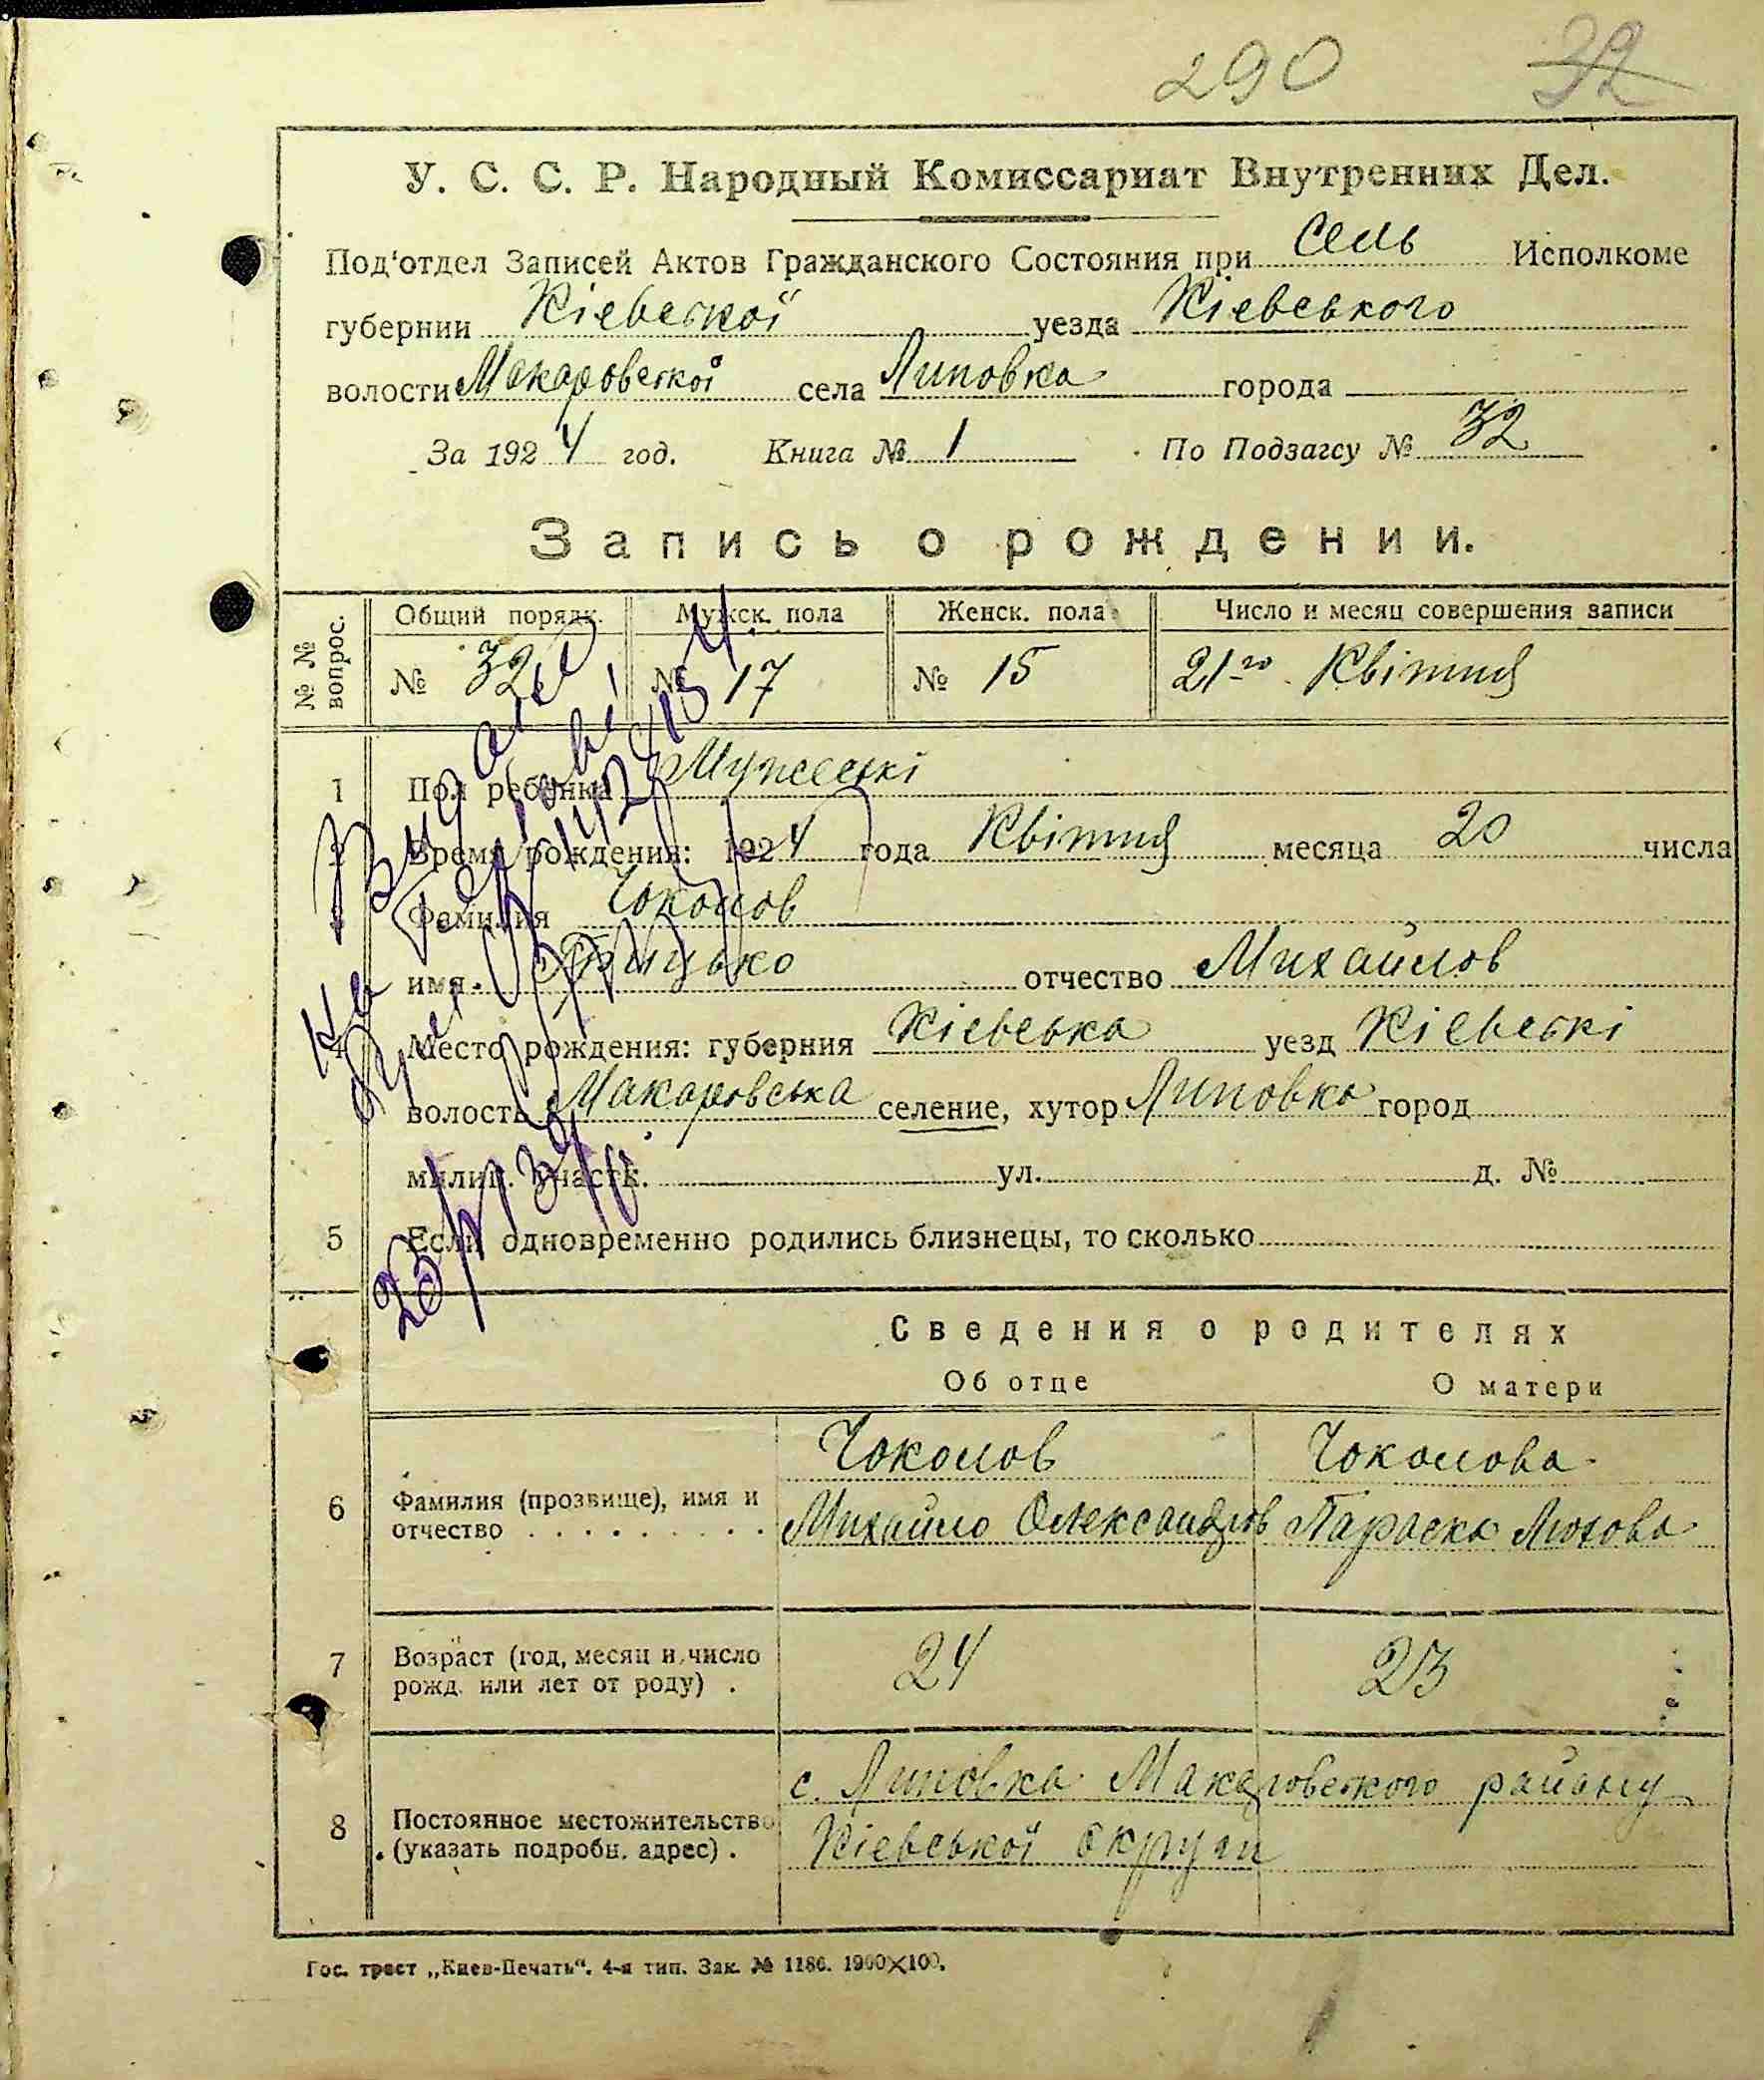 290 32
У. С. С. Р. Народный Комиссариат Внутренних Дел.
Под'отдел Записей Актов Гражданского Состояния при Сель Исполкоме
губернии Кіевської уезда Кіевського
волости Макаровскої села Липовка города
За 1924 год. Книга № 1 По Подзагсу № 32
Запись о рождении.
№ № вопрос. Общий порядк. Мужск. пола Женск. пола Число и месяц совершения записи
№ 32 № 17 № 15 21го Квітня
1 Пол ребенка Мужеські
2 Время рождения: 1924 года Квітня месяца 20 числа
3 Фамилия Чоколов
имя Грицько отчество Михайлов
4 Место рождения: губерния Кіевська уезд Кіевські
волость Макаровська селение, хутор Липовка город
милиц. участк. ул. д. №
5 Если одновременно родились близнецы, то сколько
Сведения о родителях
Об отце О матери
Чоколов Чоколова
6 Фамилия (прозвище), имя и
отчество Михайло Олександров Параска
7 Возраст (год, месяц и число
рожд. или лет от роду) . 24 23
с. Липовка Макаровского району
8 Постоянное местожительство
(указать подробн. адрес) . Кіевської округи
Гос. трест „Киев-Печать". 4-я тип. Зак. № 1186. 1900×100.